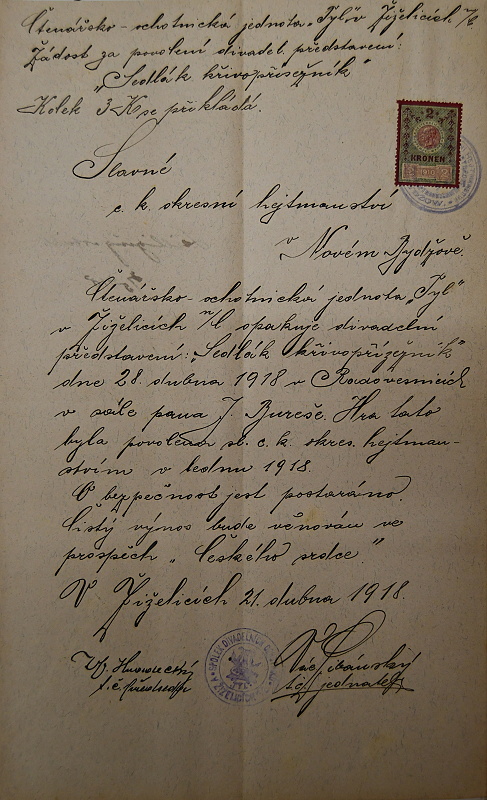 Čtenářsko-ochotnická jednota „Tyl“ v Žiželicích n/C
Žádost za povolení divadel. představení:
„Sedlák křivopřísežník“
Kolek 3-K se přikládá.
2
KRONEN
Slavné
c. k. okresní hejtmanství
v
Novém Bydžově.
Čtenářsko-ochotnická jednota „Tyl“
v Žiželicích n/C opakuje divadelní
představení: „Sedlák křivopřízežník“
dne 28. dubna 1918 v Radovesnicích
v sále pana J. Bureše. Hra tato
byla povolena sl. c. k. okres. hejtman-
stvím v lednu 1918.
O bezpečnost jest postaráno.
Čistý výnos bude věnován ve
prospěch „Českého srdce.“
V Žiželicích 21. dubna 1918.
t. č. předseda
t. č. jednatel